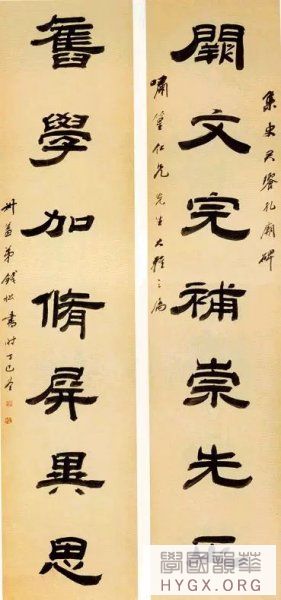 集史君饗孔廟碑
闕文完補崇先
嘯篁仁兄先生大雅之屬
舊學加脩屏異思
叔蓋弟錢松書時丁巳
學國韻華
HYGX.ORG